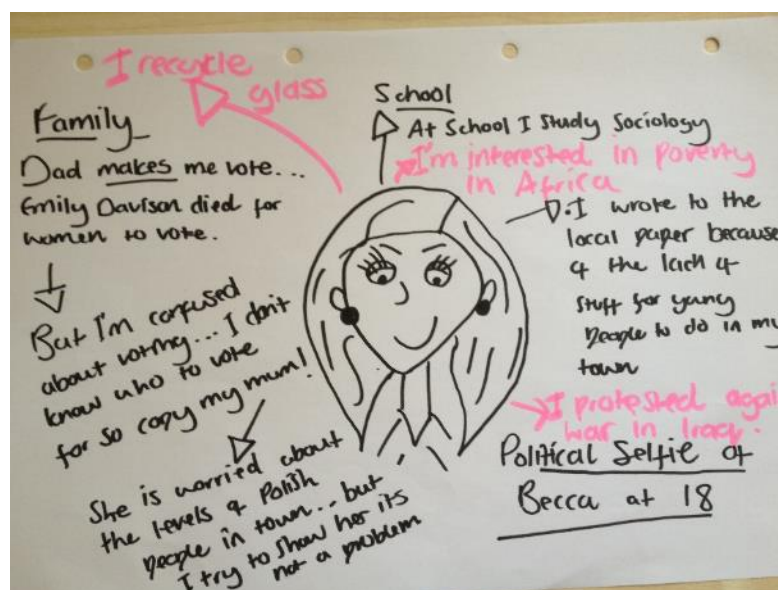 I recycle
glass
Family
Dad makes me vote...
Emily Davison died for
women to vote.
But I'm confused
about voting... I don't
know who to vote
for so copy my mum!
She is worried about
the levels of Polish
people in town... but
I try to show her its
not a problem
School
At School I Study Sociology
I'm interested in poverty
in Africa
I wrote to the
local paper because
of the lack of
stuff for young
people to do in my
town
I protested again
war in Iraq.
Political Selfie of
Becca at 18